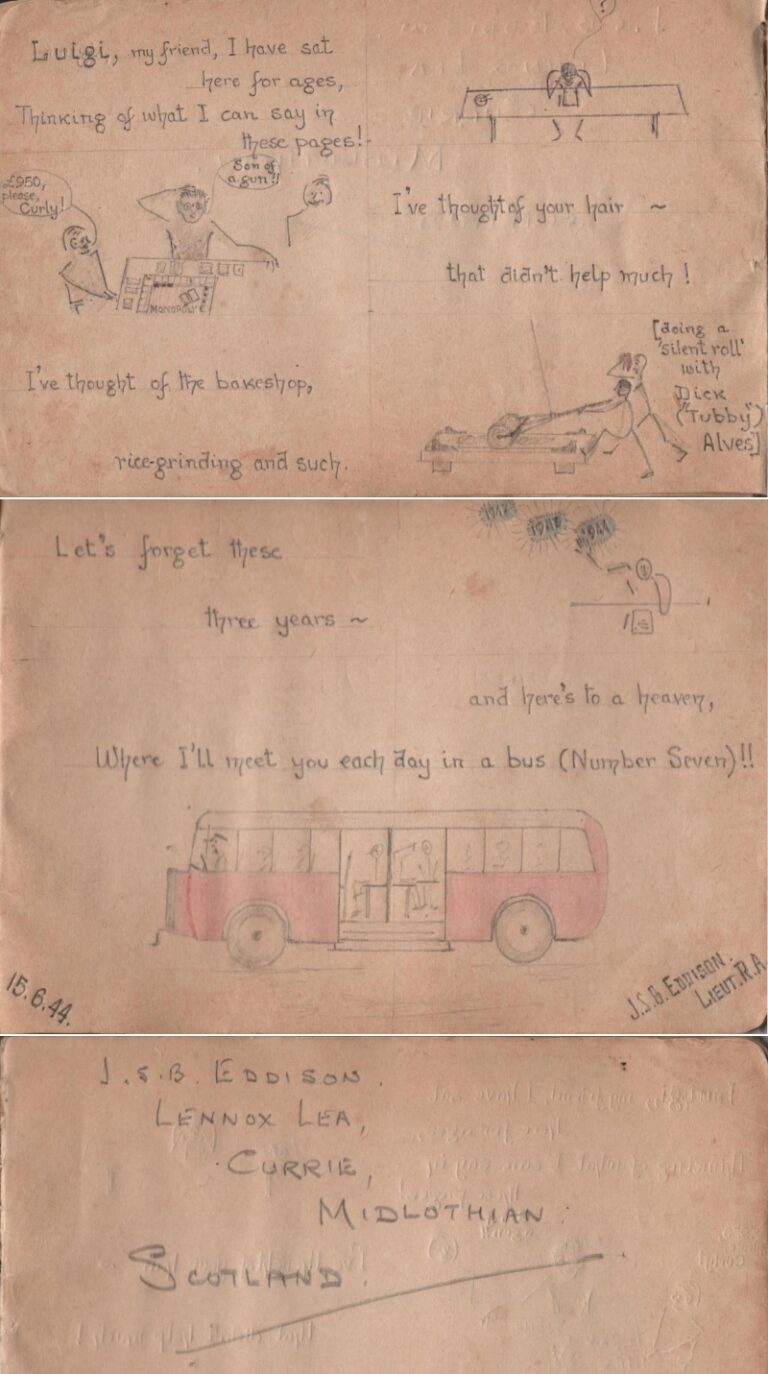 Luigi, my friend, I have sat
here for ages,
Thinking of what I can say in
these pages!
?
£950,
please,
Curly!
Son of
a gun!!
MONOPOLY
I've thought of your hair ~
that didn't help much!
I've thought of the bakeshop,
rice-grinding and such.
[doing a
'silent roll'
with
Dick
("Tubby")
Alves]
Let's forget these
three years ~
1942
1943
1944
and here's to a heaven,
Where I'll meet you each day in a bus (Number Seven)!!
15.6.44.
J.S.B. EDDISON.
LIEUT. R.A.
J.S.B. EDDISON.
LENNOX LEA,
CURRIE,
MIDLOTHIAN.
SCOTLAND.